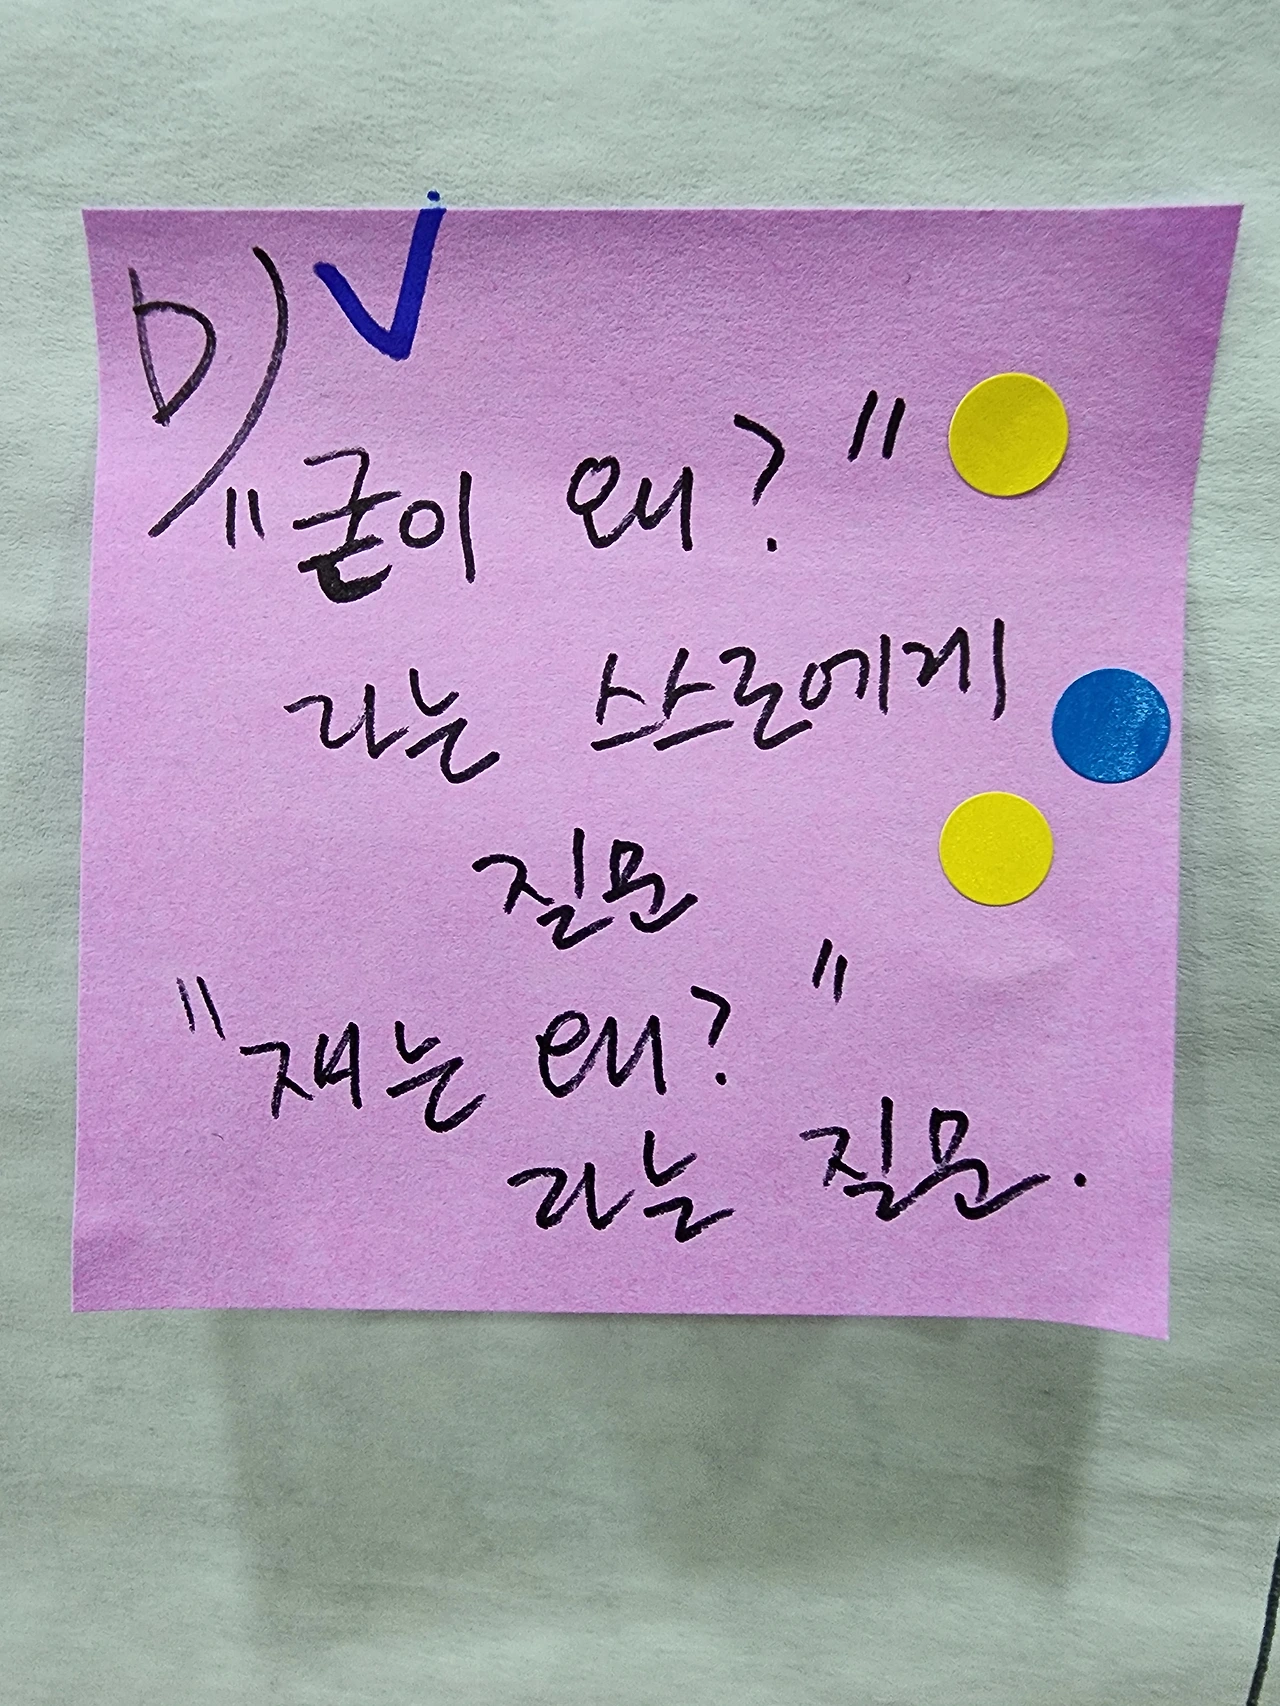 D) V
"굳이 왜?"
라는 스스로에게
질문
"쟤는 왜?"
라는 질문.